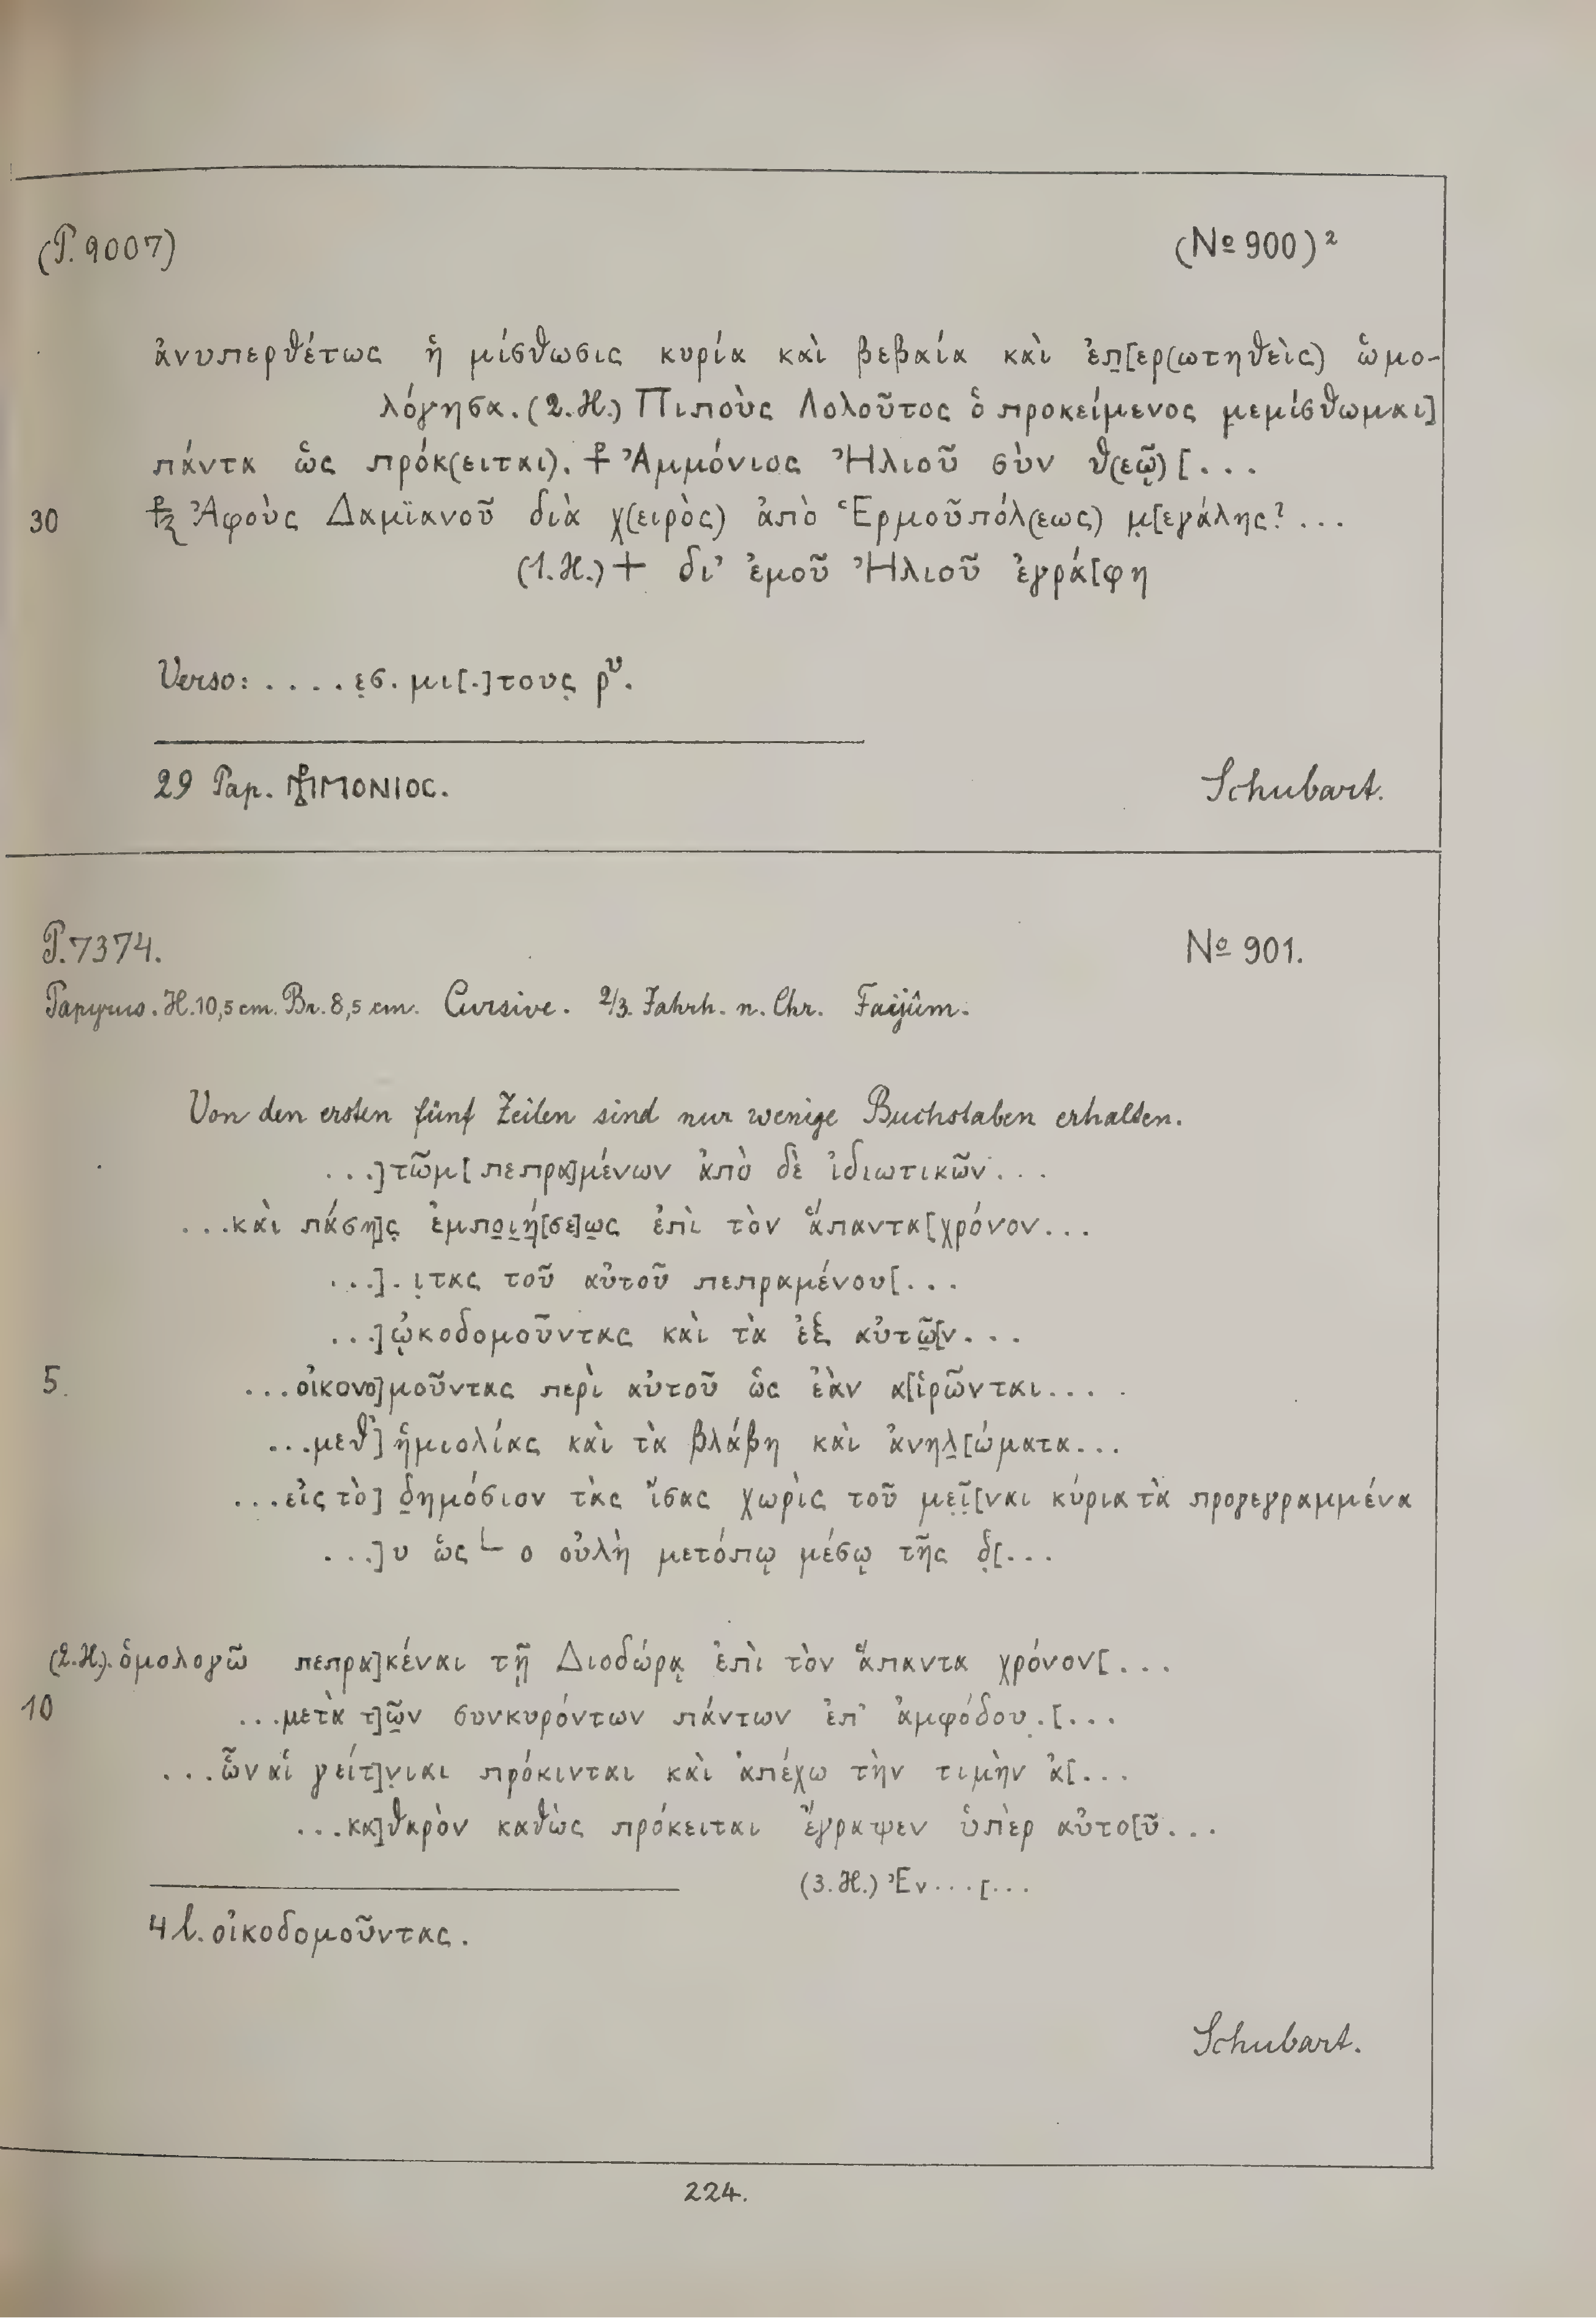 (P. 9007) (№ 900)²
ἀνυπερθέτως ἡ μίσθωσις κυρία καὶ βεβαία καὶ ἐπ̣[ερ(ωτηθεὶς) ὡμο-
λόγησα. (2. H.) Πιποὺς Λολοῦτος ὁ προκείμενος μεμίσθωμαι]
πάντα ὡς πρόκ(ειται). ⳨ Ἀμμόνιος Ἠλιοῦ σὺν θ(εῷ) [...
30 Ἀφοὺς Δαμϊανοῦ διὰ χ(ειρὸς) ἀπὸ Ἑρμοῦπόλ(εως) μ̣[εγάλης? ...
(1. H.) + δι' ἐμοῦ Ἠλιοῦ ἐγρά[φη
Verso: .... ε̣σ. μι[.]τους̣ ρᵛ.
29 Pap. ΜΟΝΙΟC.
Schubart.
P. 7374. № 901.
Papyrus. H. 10,5 cm. Br. 8,5 cm. Cursive. 2/3. Jahrh. n. Chr. Faijûm.
Von den ersten fünf Zeilen sind nur wenige Buchstaben erhalten.
...]τῶμ[ πεπρα]μένων ἀπὸ δὲ ἰδιωτικῶν...
...καὶ πάση]ς̣ ἐμπο̣ι̣ή̣[σε]ω̣ς ἐπὶ τὸν ἅπαντα[χρόνον...
...]. ι̣τας τοῦ αὐτοῦ πεπραμένου[...
...]ῳκοδομοῦντας καὶ τὰ ἐξ αὐτῶ̣[ν...
5. ...οἰκονο]μοῦντας περὶ αὐτοῦ ὡς ἐὰν α[ἱρῶνται...
...μεθ'] ἡμιολίας καὶ τὰ βλάβη καὶ ἀνηλ̣[ώματα...
...εἰς τὸ] δ̣ημόσιον τὰς ἴσας χωρὶς τοῦ με̣ῖ̣[ναι κύρια τὰ προγεγραμμένα
...]υ ὡς └ ο οὐλὴ μετόπῳ μέσῳ τῆς δ̣[...
(2. H.). ὁμολογῶ πεπρα]κέναι τῇ Διοδώρᾳ ἐπὶ τὸν ἅπαντα χρόνον[...
10 ...μετὰ τ]ῶ̣ν συνκυρόντων πάντων ἐπ' ἀμφόδου̣.[...
...ὧν αἱ γείτ]ν̣ιαι πρόκινται καὶ ἀπέχω τὴν τιμὴν ἀ[...
...κα]θαρὸν καθὼς πρόκειται ἔγραψεν ὑπὲρ αὐτο[ῦ...
(3. H.) Ἐν...[...
4 l. οἰκοδομοῦντας.
Schubart.
224.